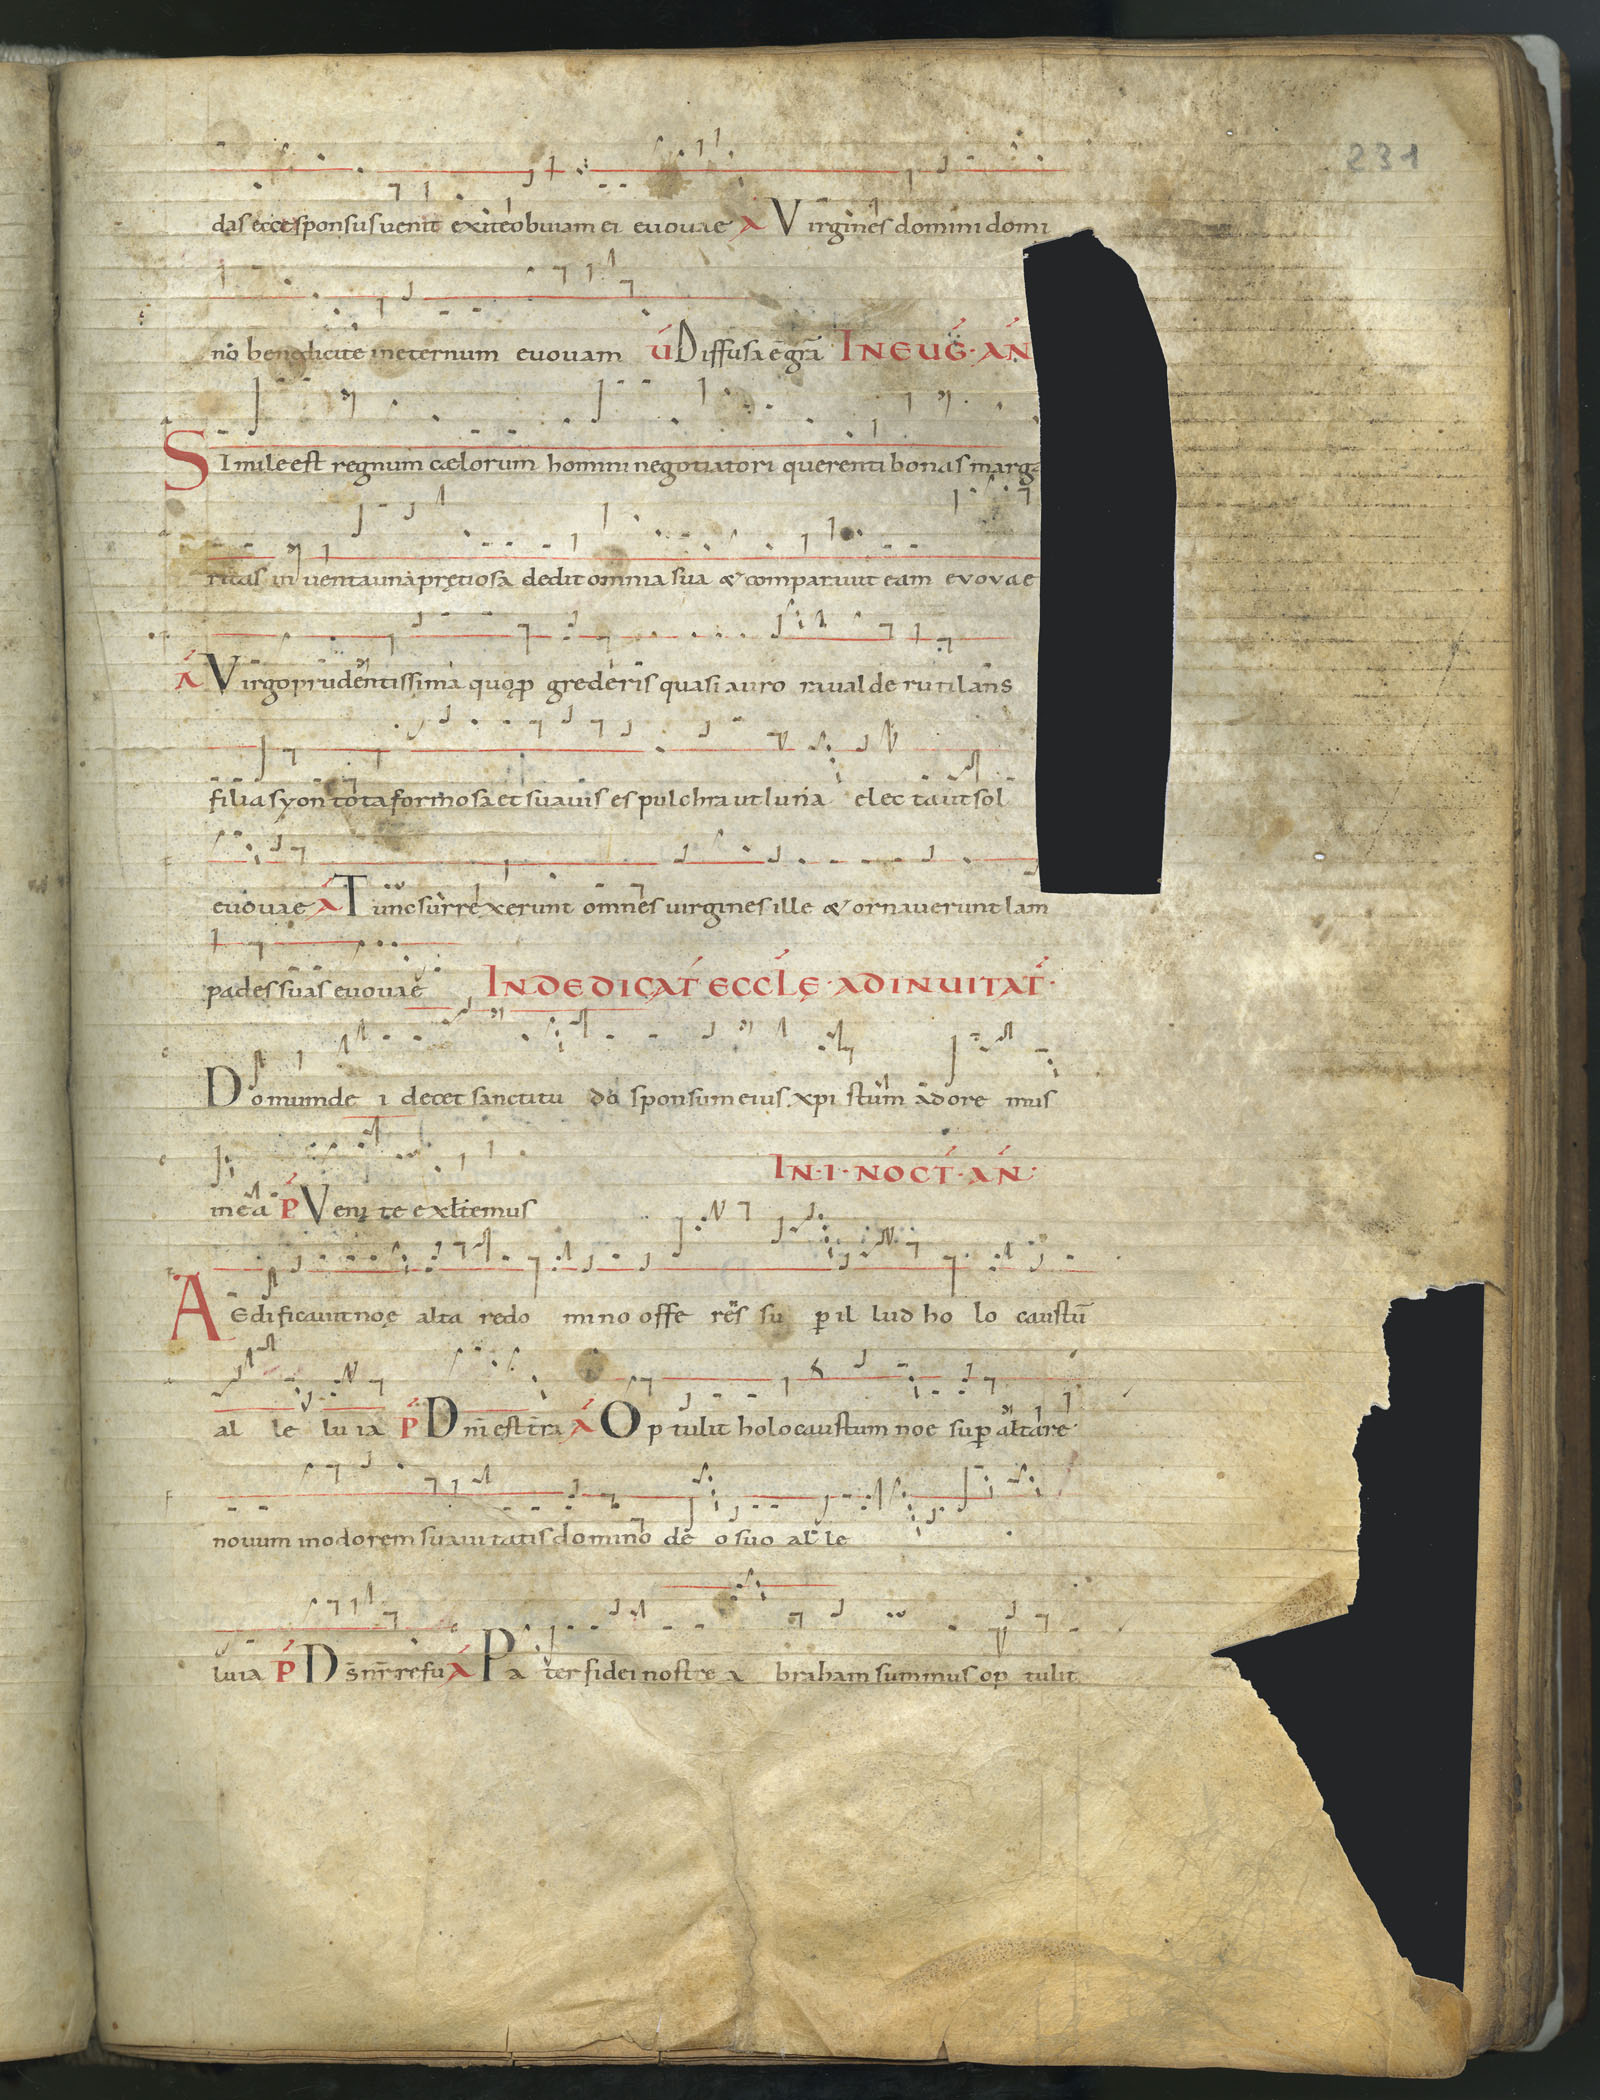 231
das ecce sponsus uenit exite obuiam ei euouae A Virgines domini domi
nō benedicite in eternum euouam V Diffusa ē grā IN EUG· AN
Simile est regnum cælorum homini negotiatori querenti bonas marga
ritas inuenta unā pręciosā dedit omnia sua & comparauit eam evovae
A Virgo prudentissima quo p grederis quasi aurora ualde rutilans
filia syon tota formosa et suauis es pulchra ut luna electa ut sol
euouae A Tunc surrexerunt omnes uirgines ille & ornauerunt lam
pades suas euouae IN DEDICAT ECCLĘ· AD INUITAT·
Domum de i decet sanctitu do sponsum eius xpi stum adore mus
in ea P Veni te exltemus IN·I·NOCT·AN·
AEdificauit noe alta re do mino offe res su p il lud ho lo caustū
al le lu ia P Dn̄i est tr̄a A Op tulit holocaustum noe sup altare
nouum in odorem suauitatis domino de o suo al le
luia P Ds nr̄ refu A Pa ter fidei nostre a braham summus op tulit